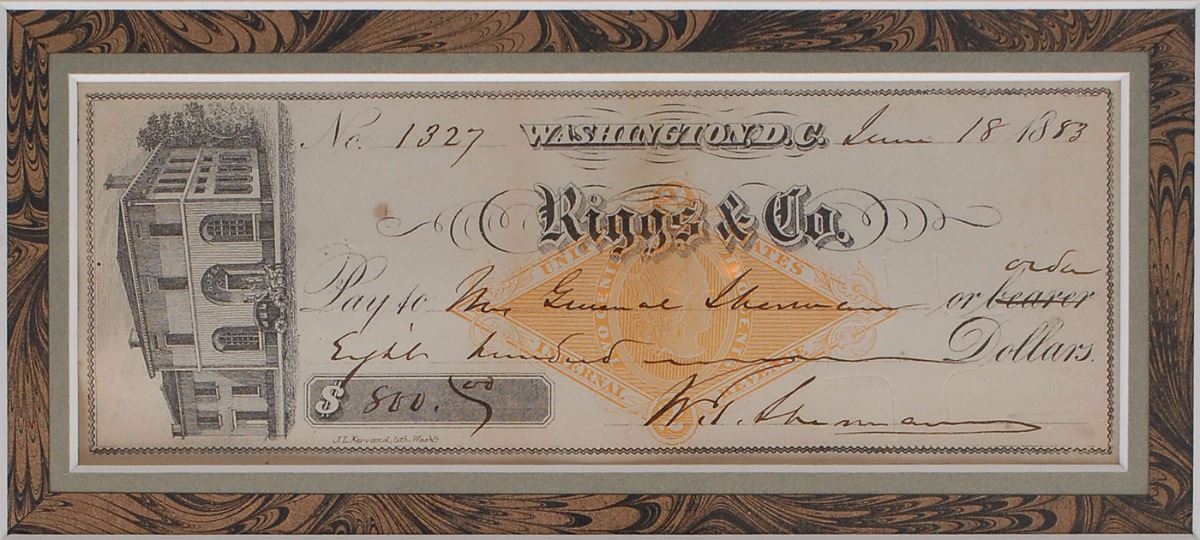 No. 1327 WASHINGTON, D.C. June 18 1883
Riggs & Co.
UNITED STATES
INTERNAL REVENUE
order
Pay to Mrs General Sherman or bearer
Eight hundred Dollars.
$ 800. 00
W. T. Sherman
J. L. Kervand, lith. Wash?